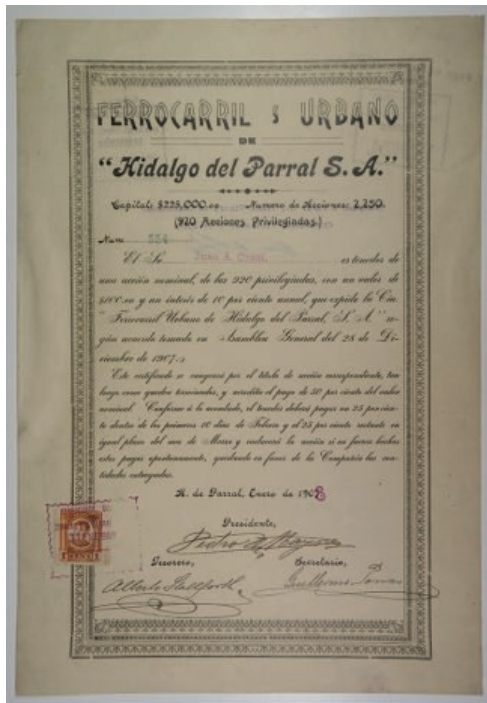 FERROCARRIL S URBANO
DE
"Hidalgo del Parral S. A."
Capital: $225,000.oo Numero de Acciones: 2,250.
(920 Acciones Privilegiadas.)
Num 334
El Sr. Juan A. es tenedor de
una acción nominal, de las 920 privilegiadas, con un valor de
$100.oo y un interés de 10 por ciento anual, que expide la Cia.
"Ferrocarril Urbano de Hidalgo del Parral, S. A." se-
gún acuerdo tomado en Asamblea General del 28 de Di-
ciembre de 1907.
Este certificado se cangeará por el título de acción correspondiente, tan
luego como queden terminados, y acredita el pago de 50 por ciento del valor
nominal. Conforme á lo acordado, el tenedor deberá pagar un 25 por cien-
to dentro de los primeros 10 dias de Febrero y el 25 por ciento restante en
igual plazo del mes de Marzo y caducará la acción si no fueren hechos
estos pagos oportunamente, quedando en favor de la Compañía las can-
tidades entregadas.
H. de Parral, Enero de 1908
Presidente,
Tesorero, Secretario,
Alberto Stallforth